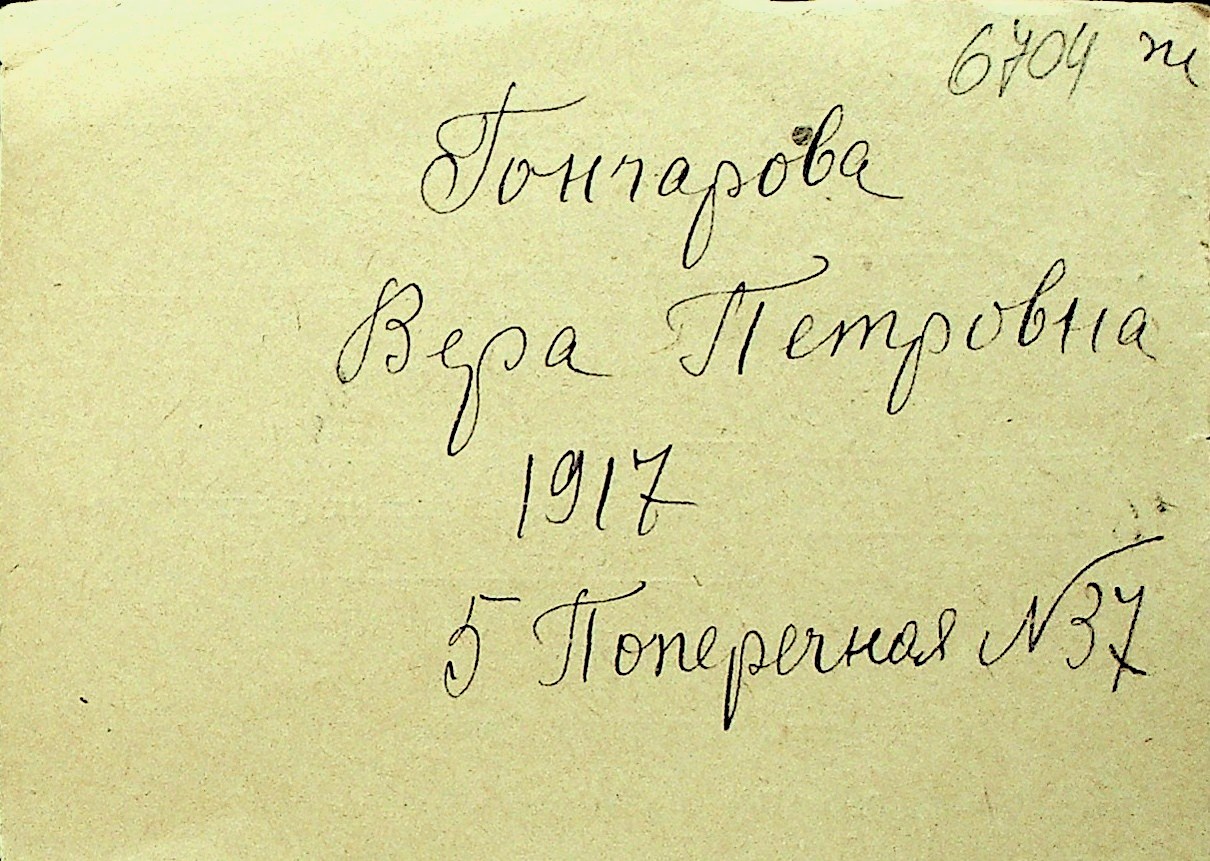 6704 ж
Гончарова
Вера Петровна
1917
5 Поперечная №37